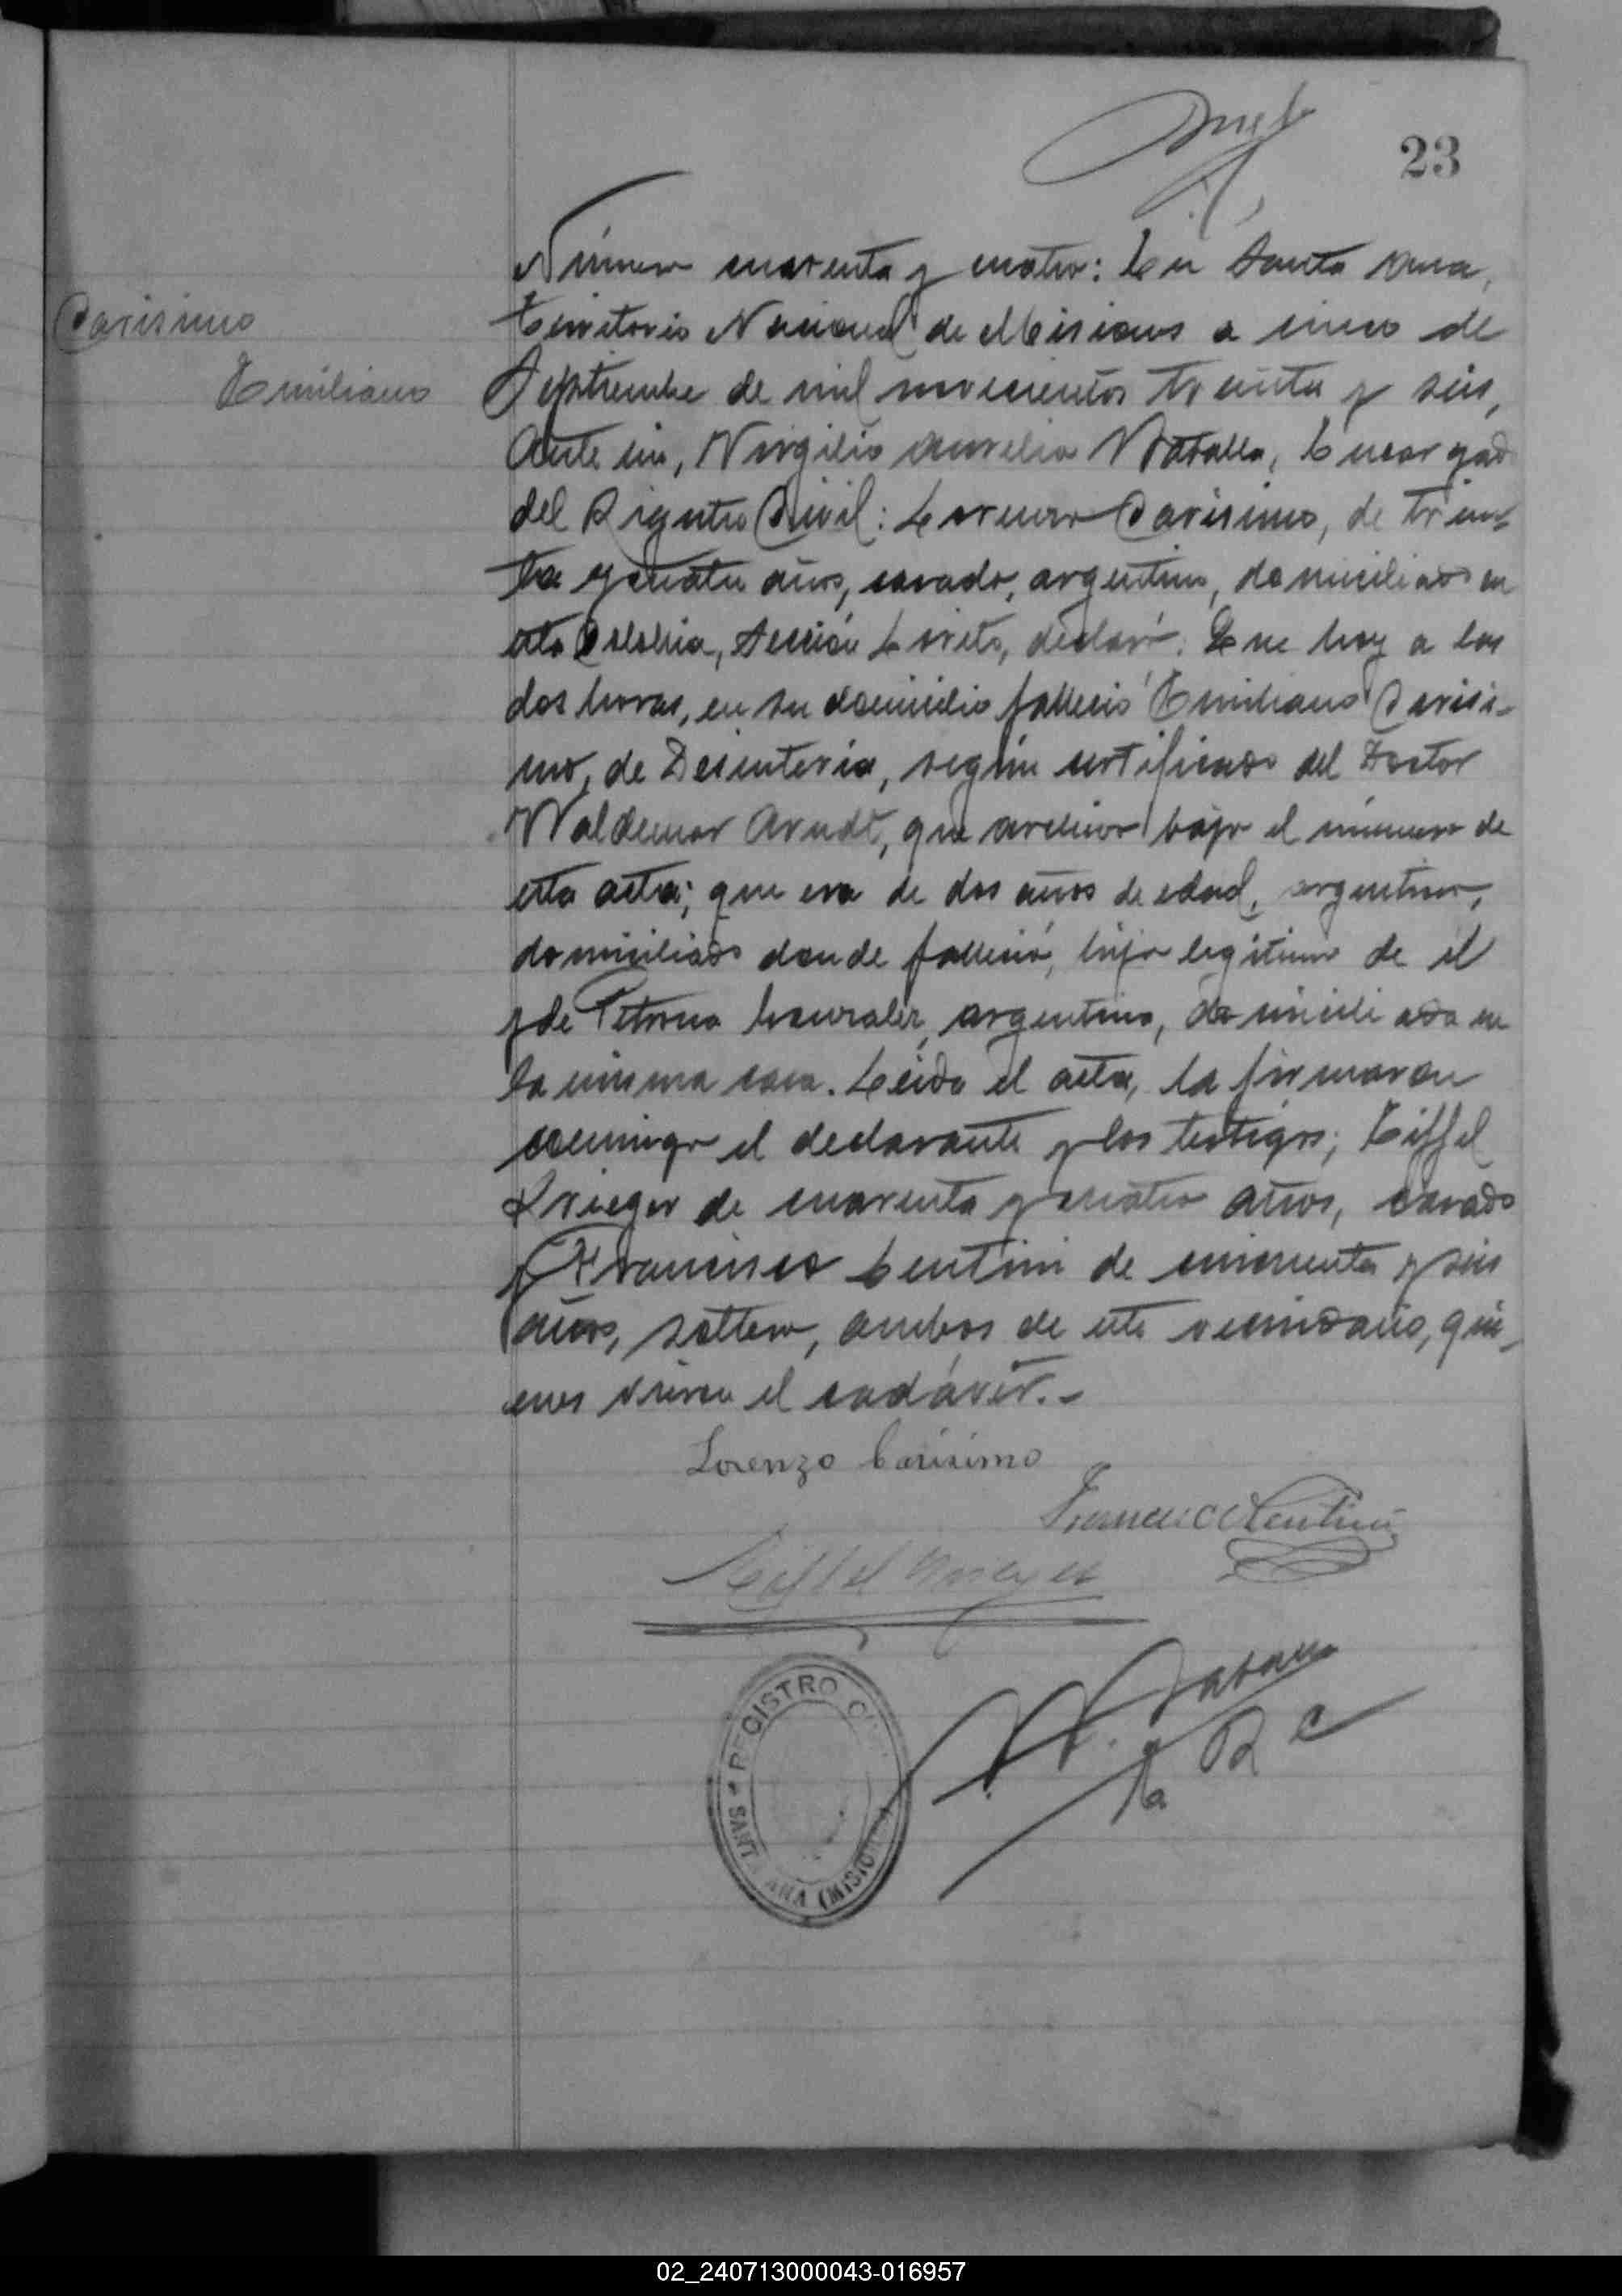 23
Número cuarenta y cuatro: En Santa Ana,
Carisimo
Territorio Nacional de Misiones a cinco de
Emiliano
Septiembre de mil novecientos treinta y seis,
Ante mi, Virgilio Aurelio , Encargado
del Registro Civil: Lorenzo Carisimo, de trein-
ta y cuatro años, casado, argentino, domiciliado en
esta Colonia, Sección Loreto, declaró: Que hoy a las
dos horas, en su domicilio falleció Emiliano Carisi-
mo, de Desinteria, según certificado del Doctor
Waldemar Arndt, que archivo bajo el número de
esta acta; que era de dos años de edad, argentino,
domiciliado donde falleció, hijo legítimo de él
y de Petrona Gonzalez, argentina, domiciliada en
la misma casa. Leida el acta, la firmaron
conmigo el declarante y los testigos; Eiffel
Krieger de cuarenta y cuatro años, casado
y Francisco Lentini de cincuenta y seis
años, soltero, ambos de este vecindario, qui-
enes vieron el cadáver.-
Lorenzo Carisimo
Francisco Lentini
Eiffel Krieger
REGISTRO CIVIL
SANTA ANA (MISIONES)
E. R C
02_240713000043-016957